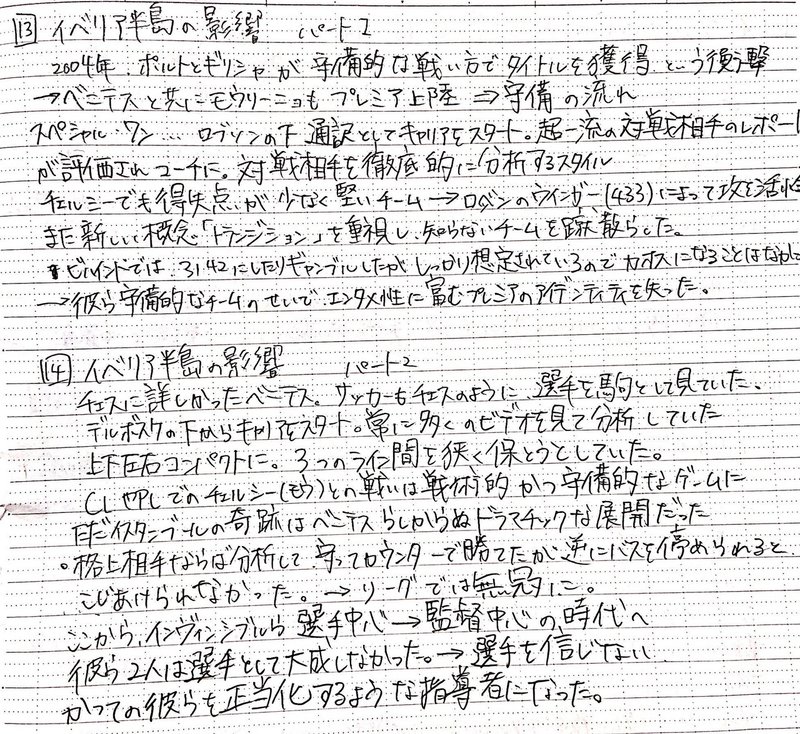 13 イベリア半島の影響 パート1
2004年、ポルトとギリシャが守備的な戦い方でタイトルを獲得という衝撃
→ベニテスと共にモウリーニョもプレミア上陸 ⇒守備の流れ
スペシャル・ワン… ロブソンの下通訳としてキャリアをスタート。超一流の対戦相手のレポート
が評価されコーチに。対戦相手を徹底的に分析するスタイル
チェルシーでも得失点が少なく堅いチーム→ロッベンのウインガー(433)によって攻を活性
また新しい概念「トランジション」を重視し、知らないチームを蹴散らした。
ビハインドでは、3142にしたりギャンブルしたがしっかり想定されているのでカオスになることはなかった
→彼ら守備的なチームのせいで、エンタメ性に富むプレミアのアイデンティティを失った。
14 イベリア半島の影響 パート2
チェスに詳しかったベニテス。サッカーもチェスのように、選手を駒として見ていた。
デルボスケの下からキャリアをスタート。常に多くのビデオを見て分析していた
上下左右コンパクトに。3つのライン間を狭く保とうとしていた。
CLやPLでのチェルシー(モウ)との戦いは戦術的かつ守備的なゲームに
ただイスタンブールの奇跡はベニテスらしからぬドラマチックな展開だった
・格上相手ならば分析して、守ってカウンターで勝てたが逆にバスを停められると
こじあけられなかった。→リーグでは無冠に。
ここから、インヴィンシブルら選手中心→監督中心の時代へ
彼ら2人は選手として大成しなかった。→選手を信じない
かつての彼らを正当化するような指導者になった。